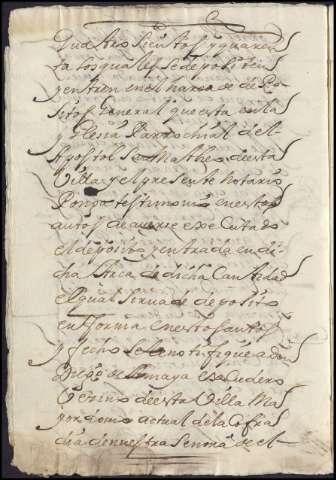 quatro sientos y quaren
ta los quales se depositen
y entren en el harca de depo
sitos General que esta en la
yglesia Parrochial de el
Apostol Sn Matheo de esta
Villa y el presente notario
Ponga testimonio en estos
autos de averse executado
el deposito y entrada en di
cha harca de dicha Cantidad
el qual sirva de deposito
en forma en estos autos
y fecho se le notifique a don
Diego de Amaya escudero
Vecino de esta Villa Ma
yordomo actual de la Cofra
dia de nuestra Señora de el